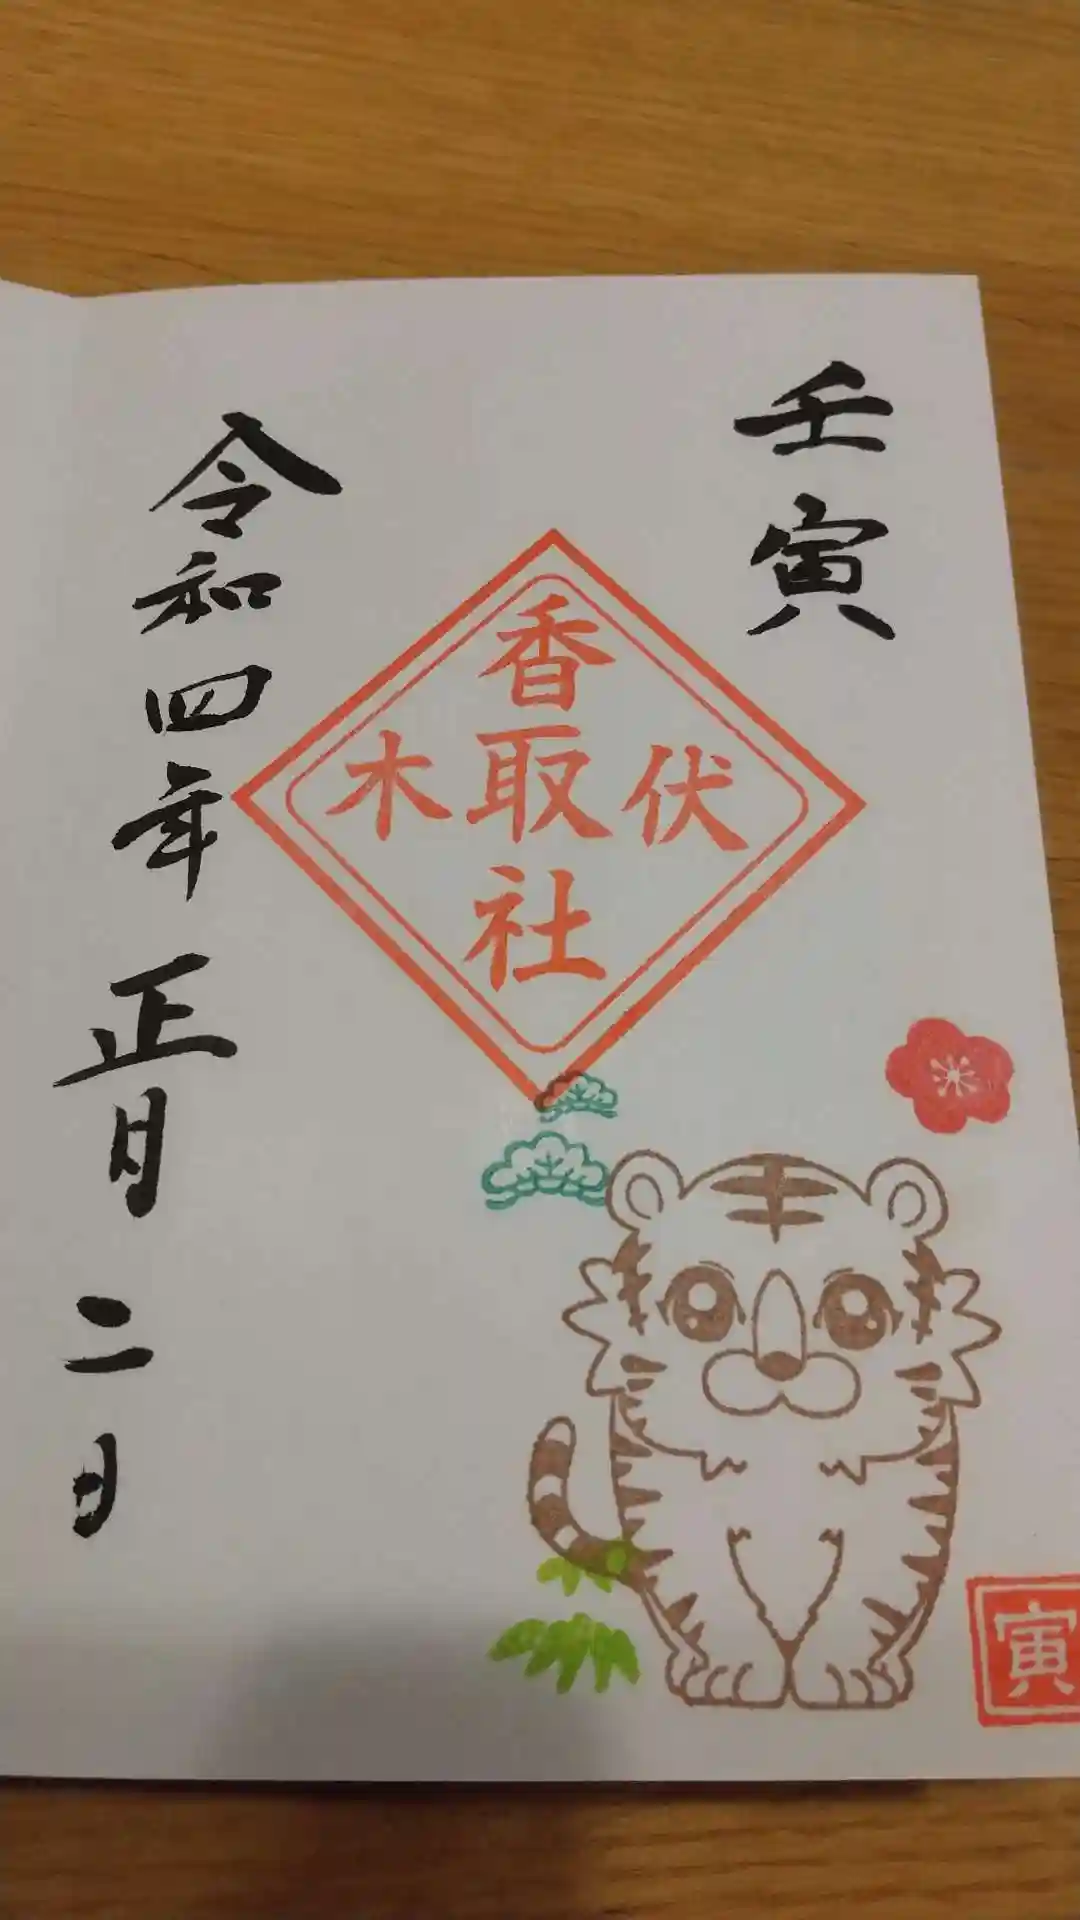 壬寅
伏木
香取社
令和四年正月二日
寅